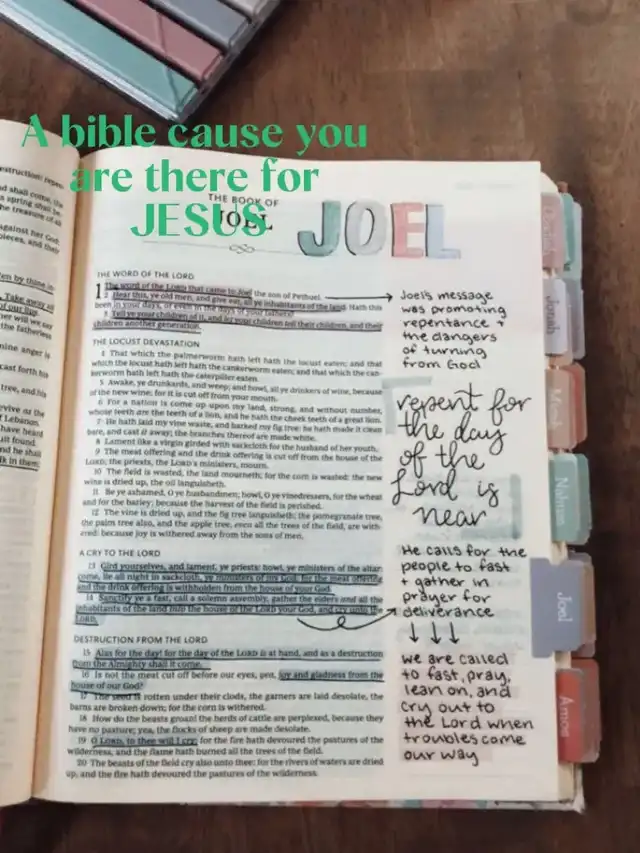 A bible cause you
are there for
JESUS
THE BOOK OF
JOEL
JOEL
THE WORD OF THE LORD
1 The word of the LORD that came to Joel the son of Pethuel.
2 Hear this, ye old men, and give ear, all ye inhabitants of the land. Hath this
been in your days, or even in the days of your fathers?
3 Tell ye your children of it, and let your children tell their children, and their
children another generation.
THE LOCUST DEVASTATION
4 That which the palmerworm hath left hath the locust eaten; and that
which the locust hath left hath the cankerworm eaten; and that which the can-
kerworm hath left hath the caterpiller eaten.
5 Awake, ye drunkards, and weep; and howl, all ye drinkers of wine, because
of the new wine; for it is cut off from your mouth.
6 For a nation is come up upon my land, strong, and without number,
whose teeth are the teeth of a lion, and he hath the cheek teeth of a great lion.
7 He hath laid my vine waste, and barked my fig tree: he hath made it clean
bare, and cast it away; the branches thereof are made white.
8 Lament like a virgin girded with sackcloth for the husband of her youth.
9 The meat offering and the drink offering is cut off from the house of the
LORD; the priests, the LORD's ministers, mourn.
10 The field is wasted, the land mourneth; for the corn is wasted: the new
wine is dried up, the oil languisheth.
11 Be ye ashamed, O ye husbandmen; howl, O ye vinedressers, for the wheat
and for the barley; because the harvest of the field is perished.
12 The vine is dried up, and the fig tree languisheth; the pomegranate tree,
the palm tree also, and the apple tree, even all the trees of the field, are with-
ered: because joy is withered away from the sons of men.
A CRY TO THE LORD
13 Gird yourselves, and lament, ye priests: howl, ye ministers of the altar:
come, lie all night in sackcloth, ye ministers of my God: for the meat offering
and the drink offering is withholden from the house of your God.
14 Sanctify ye a fast, call a solemn assembly, gather the elders and all the
inhabitants of the land into the house of the LORD your God, and cry unto the
LORD,
DESTRUCTION FROM THE LORD
15 Alas for the day! for the day of the LORD is at hand, and as a destruction
from the Almighty shall it come.
16 Is not the meat cut off before our eyes, yea, joy and gladness from the
house of our God?
17 The seed is rotten under their clods, the garners are laid desolate, the
barns are broken down; for the corn is withered.
18 How do the beasts groan! the herds of cattle are perplexed, because they
have no pasture; yea, the flocks of sheep are made desolate.
19 O LORD, to thee will I cry: for the fire hath devoured the pastures of the
wilderness, and the flame hath burned all the trees of the field.
20 The beasts of the field cry also unto thee: for the rivers of waters are dried
up, and the fire hath devoured the pastures of the wilderness.
Joel's message
was promoting
repentance +
the dangers
of turning
from God
repent for
the day
of the
Lord is
near
He calls for the
people to fast
+ gather in
prayer for
deliverance
we are called
to fast, pray,
lean on, and
cry out to
the Lord when
troubles come
our way
Jonah
Micah
Nahum
Joel
Amos